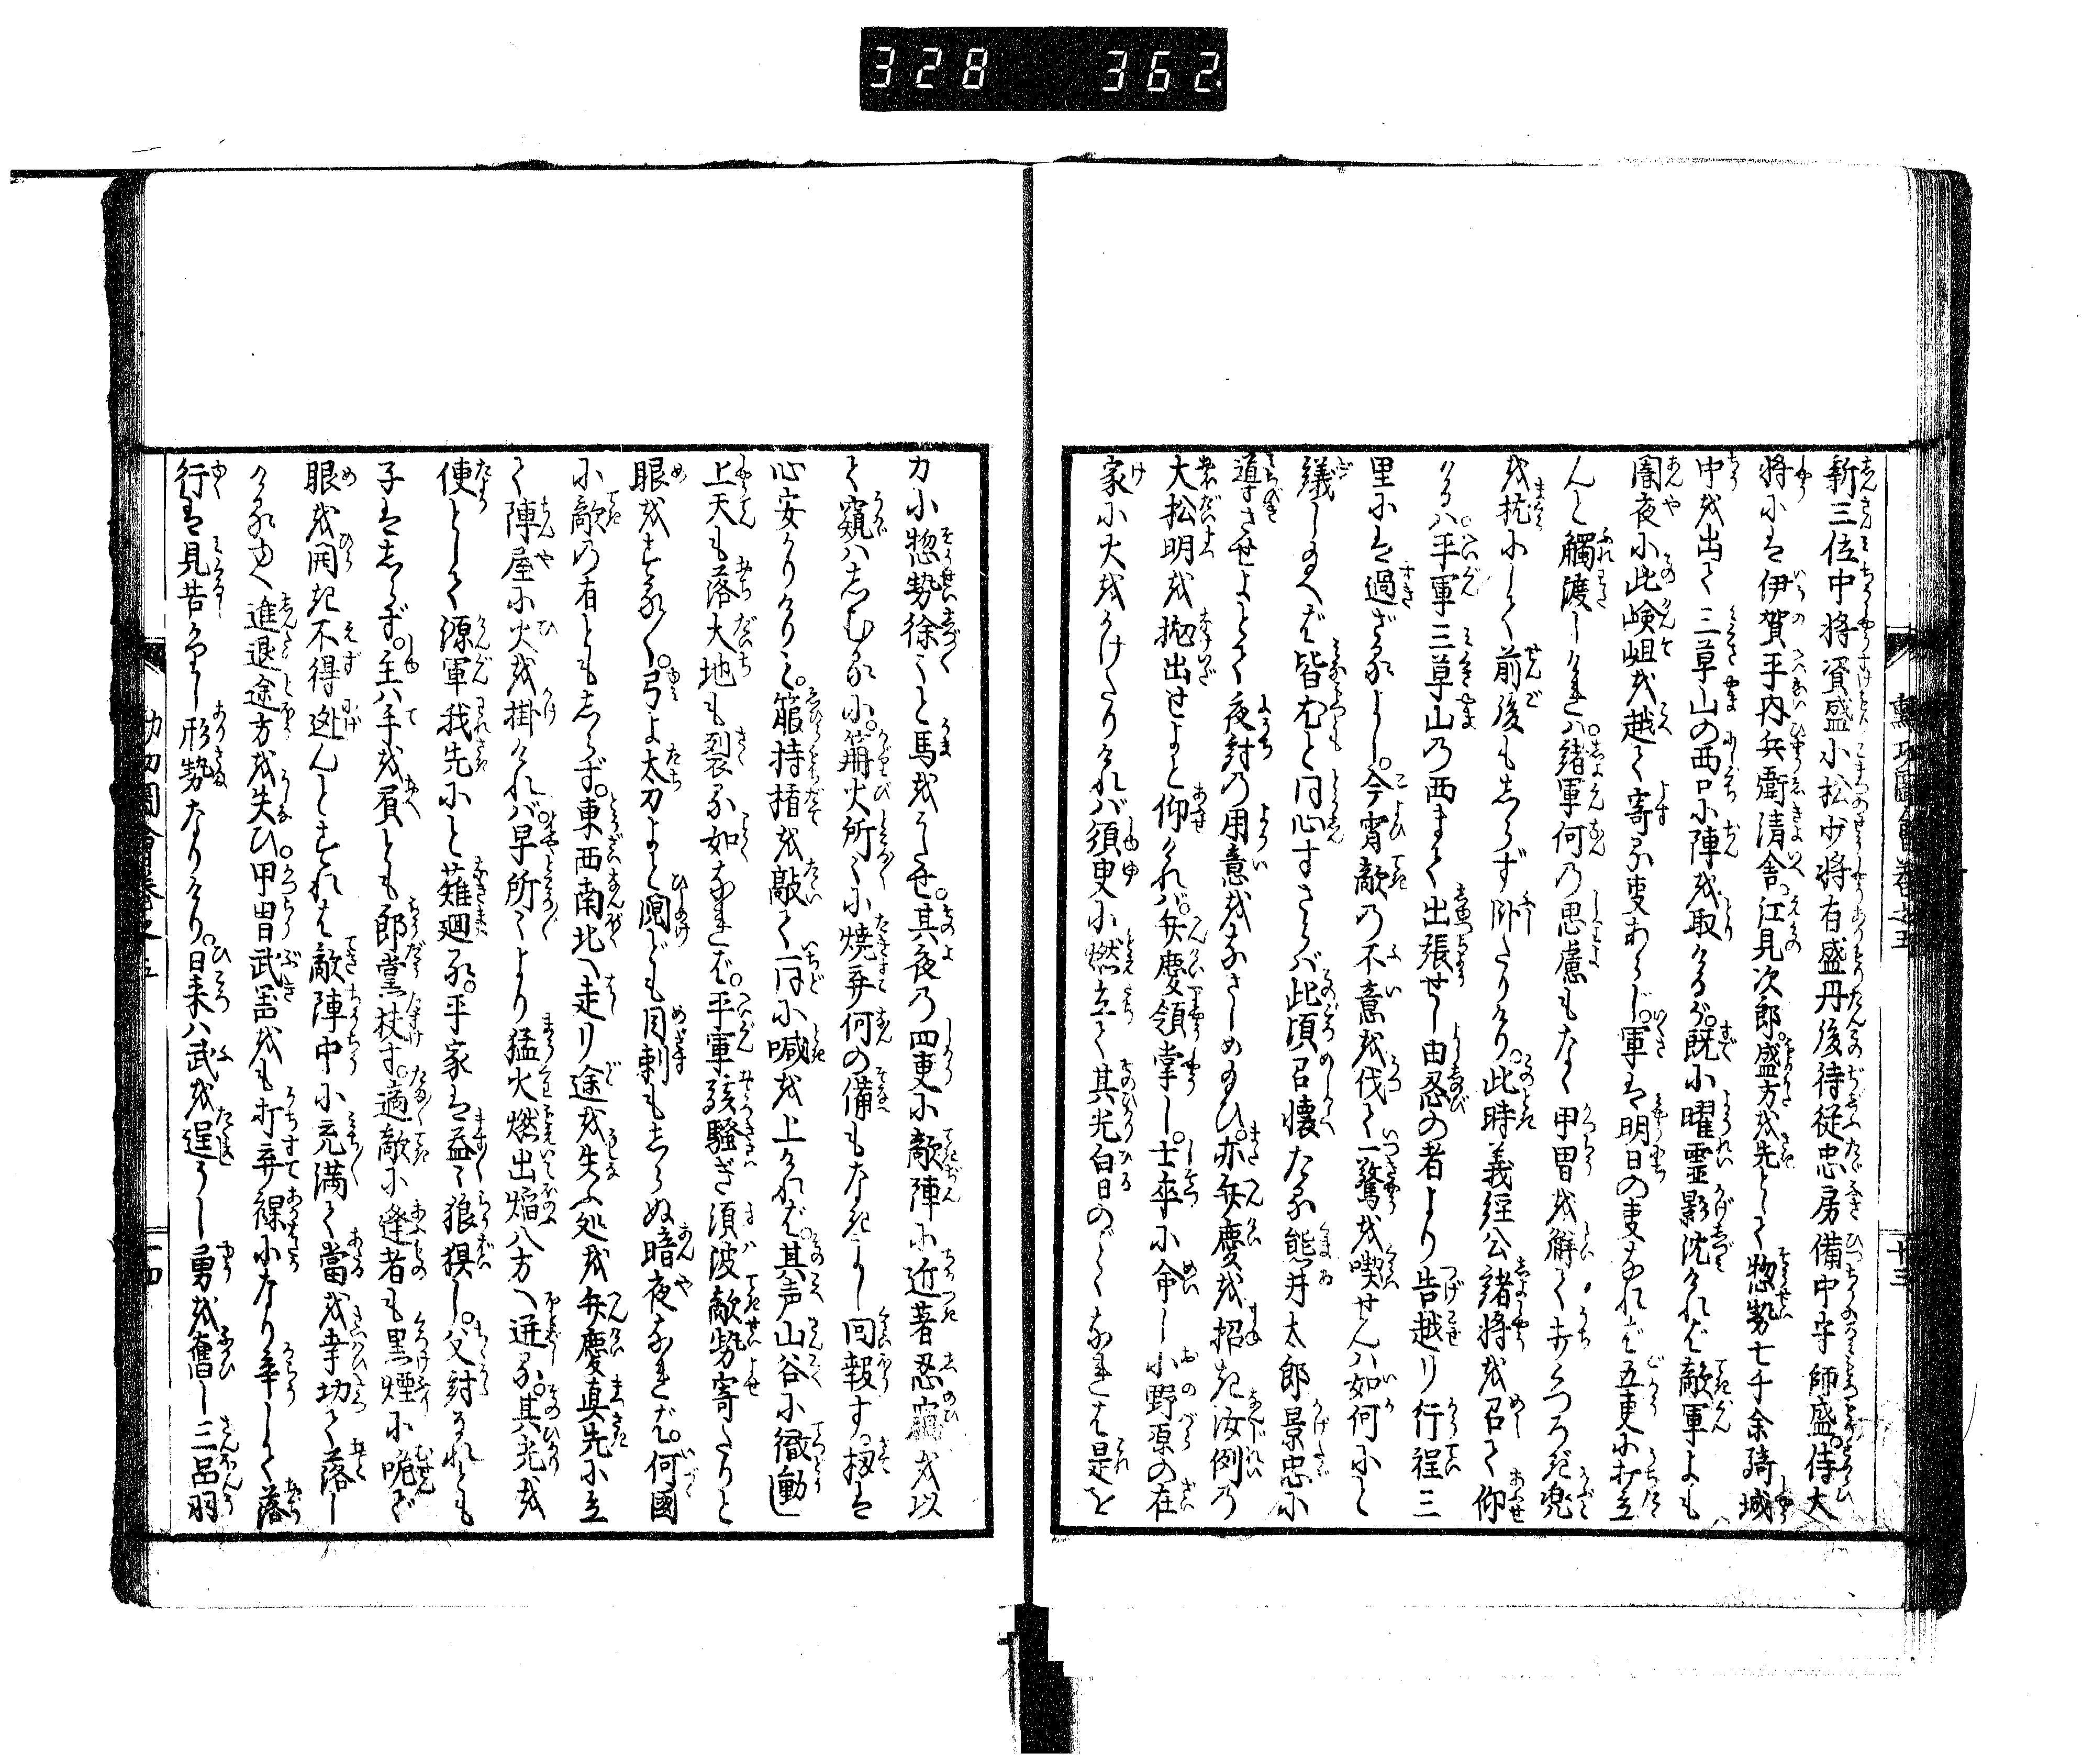 328 362
新三位中将資盛小松少将有盛丹後侍従忠房備中守師盛侍大
将には伊賀平内兵衛清舎江見次郎盛方を先として惣勢七千余騎城
中を出て三草山の西口に陣を取けるが既に曜霊影沈ければ敵軍よも
闇夜に此嶮岨を越て寄る事あらじ軍は明日の事なれば五更に打立
んと觸渡しければ諸軍何の思慮もなく甲冑を解てうちくつろぎ兜
を枕にして前後もしらず臥たりけり此時義経公諸将を召て仰
けるハ平軍三草山の西まで出張せし由忍の者より告越り行程三
里には過ざるよし今宵敵の不意を伐て一驚を喫せんハ如何にと
議し給へば皆尤と同心すさらバ此頃召懐たる熊井太郎景忠に
道引させよとて夜討の用意をなさしめ給ひ亦弁慶を招き汝例の
大松明を拋出せよと仰ければ弁慶領掌し士卒に命し小野原の在
家に火をかけたりければ須臾に燃立て其光白日のごとくなれば是を
力に惣勢徐々と馬をうたせ其夜の四更に敵陣に近着忍竊を以
て窺ハしむるに篝火所々に焼弃何の備もなきよし回報す扨は
心安かりけりと箙持楯を敲て一同に喊を上ければ其声山谷に徹動
上天も落大地も裂る如なれば平軍駭騒ぎ須波敵勢寄たりと
眼をするゝ弓よ太刀よと鬩ども目刺もしらぬ暗夜なれば何國
に敵の有ともしらず東西南北へ走り途を失ふ処を弁慶真先に立
て陣屋に火を掛ければ早所々より猛火燃出焔八方へ迸る其光を
便として源軍我先にと薙廻る平家は益々狼狽し父討るれども
子はしらず主ハ手を負とも郎黨扶ず適敵に逢者も黒煙に咽で
眼を開き不得迯んとすれば敵陣中に充満て當を幸切て落し
ける故進退途方を失ひ甲冑武器をも打弃裸になり辛して落
行は見苦かりし形勢なりけり日来ハ武を逞うし勇を奮し三呂羽